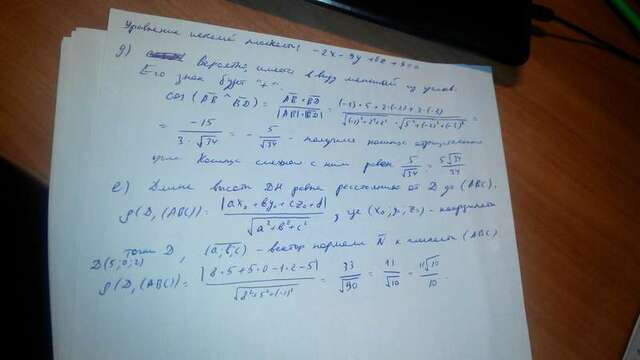 Уравнение искомой плоскости: -2x-9y+6z+8=0
д) Вероятно, имеется в виду меньший из углов.
Его знак будет "+".
cos(AB ^ BD) = AB·BD / |AB|·|BD| = (-1)·5+2·(-2)+2·(-3) / √(-1)²+2²+2² · √5²+(-2)²+(-3)² =
= -15 / 3·√34 = - 5/√34 - получили косинус
угла. Косинус смежного с ним равен 5/√34 = 5√34/34
е) Длина высоты DH равна расстоянию от D до (ABC).
ρ(D, (ABC)) = |ax₀+by₀+cz₀+d| / √a²+b²+c², где (x₀; y₀; z₀) - координаты
точки D, (a; b; c) - вектор нормали N к плоскости (ABC)
D(5; 0; 2)
ρ(D, (ABC)) = |8·5+5·0-1·2-5| / √8²+5²+(-1)² = 33/√90 = 11/√10 = 11√10/10.